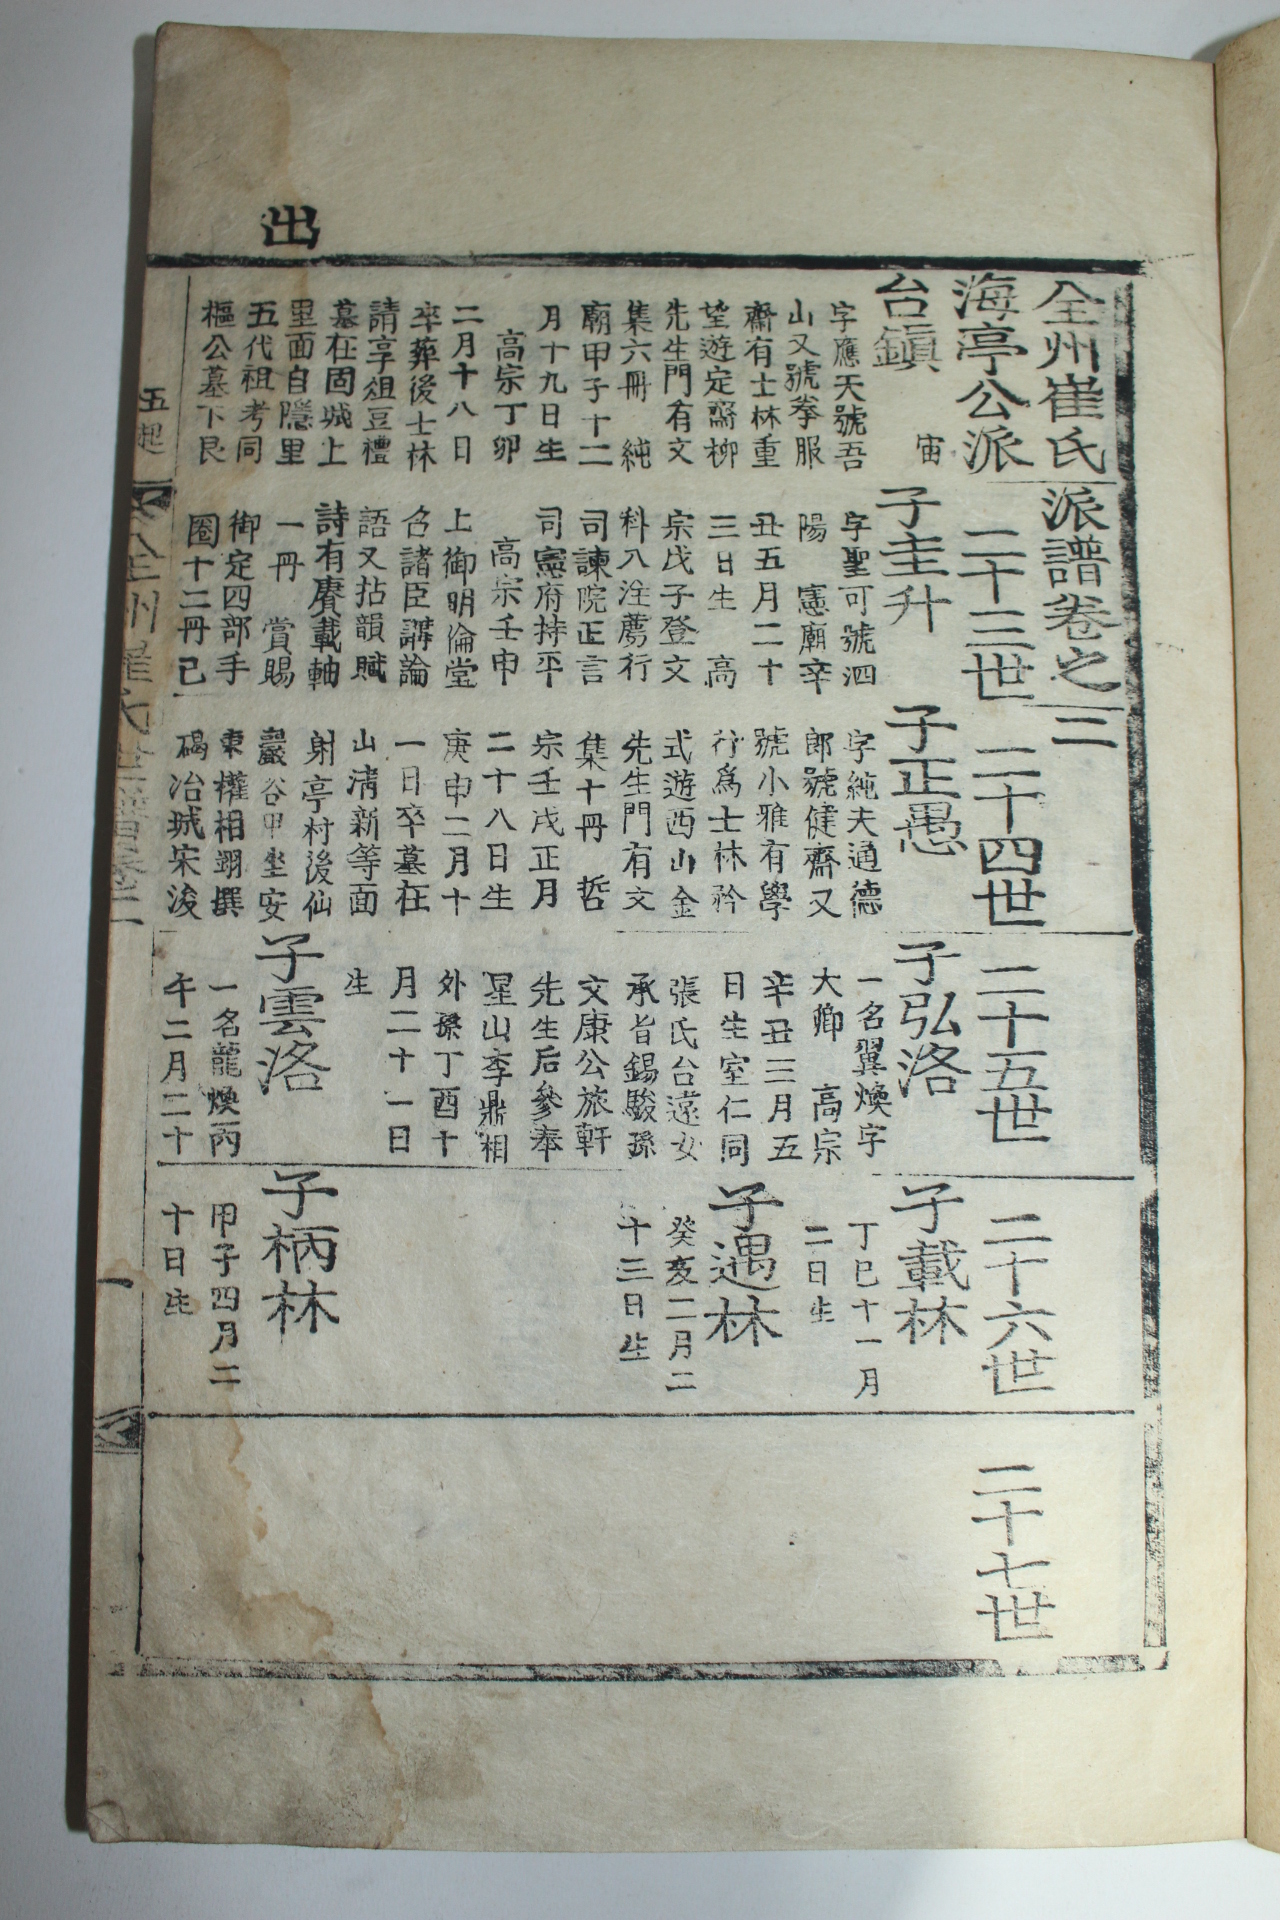 出
全州崔氏派譜卷之二
海亭公派
二十三世
二十四世
二十五世
二十六世
二十七世
台鎭
宙
字應天號吾
山又號拳服
齋有士林重
望遊定齋柳
先生門有文
集六冊 純
廟甲子十二
月十九日生
高宗丁卯
二月十八日
卒葬後士林
請享俎豆禮
墓在固城上
里面自隱里
五代祖考同
樞公墓下艮
子圭升
字聖可號泗
陽 憲廟辛
丑五月二十
三日生 高
宗戊子登文
科入注薦行
司諫院正言
司憲府持平
高宗壬申
上御明倫堂
召諸臣講論
語又拈韻賦
詩有賡載軸
一冊 賞賜
御定四部手
圈十二冊己
子正愚
字純夫通德
郎號健齋又
號小雅有學
行爲士林矜
式遊西山金
先生門有文
集十冊 哲
宗壬戌正月
二十八日生
庚申二月十
一日卒墓在
山淸新等面
射亭村後仙
巖谷甲坐安
東權相翊撰
碣冶城宋浚
子弘洛
一名翼煥字
大卿 高宗
辛丑三月五
日生室仁同
張氏台遠女
承旨錫駿孫
文康公旅軒
先生后參奉
星山李鼎相
外孫丁酉十
月二十一日
生
子雲洛
一名龍煥丙
午二月二十
子載林
丁巳十一月
二日生
子遇林
癸亥二月二
十三日生
子柄林
甲子四月二
十日生
五起
全州崔氏世譜卷之二
一